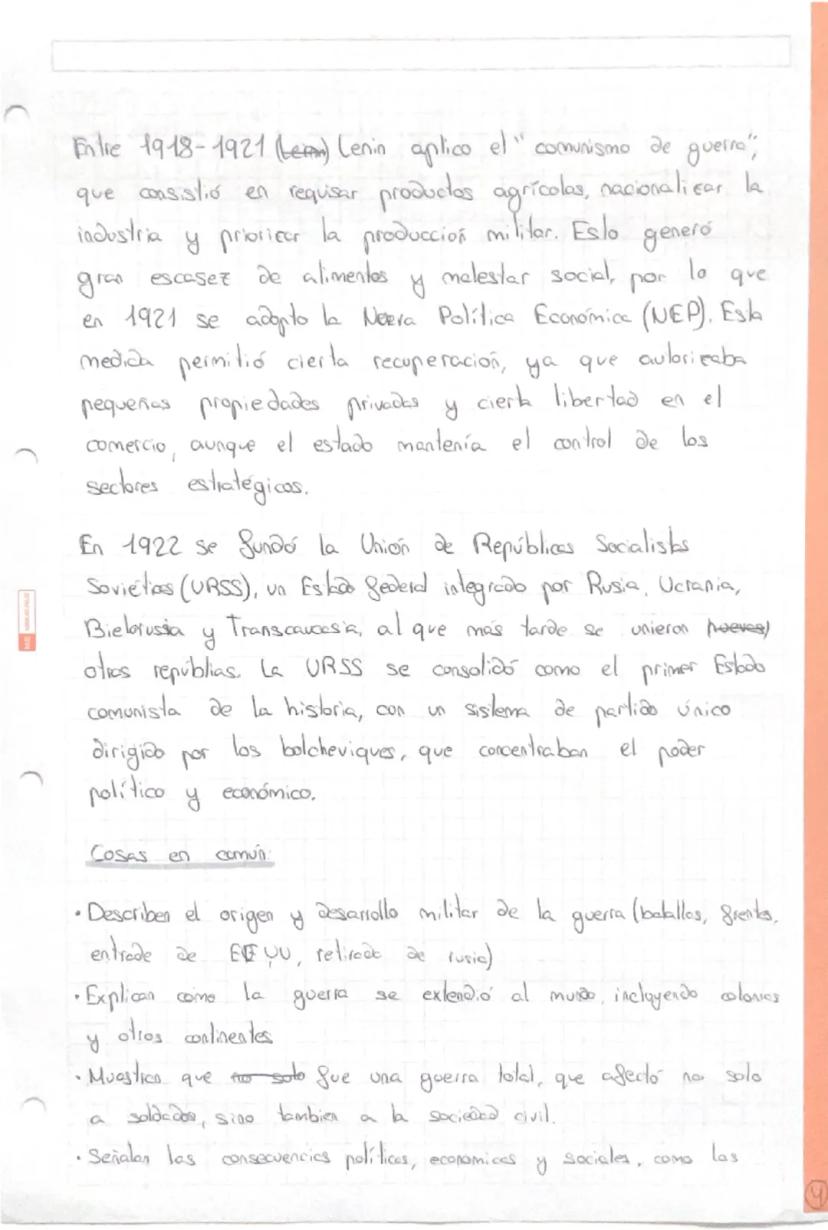 Entre 1918-1921 (Lenin) Lenin aplico el "comunismo de guerra",
que consistió en requisar productos agrícolas, nacionalizar la
industria y priorizar la producción militar. Esto generó
gran escasez de alimentos y malestar social, por lo que
en 1921 se adopto la Nueva Política Económica (NEP). Esta
medida permitió cierta recuperación, ya que autorizaba
pequeñas propiedades privadas y cierta libertad en el
comercio, aunque el estado mantenía el control de los
sectores estratégicos.
En 1922 se fundó la Unión de Repúblicas Socialistas
Soviéticas (URSS), un Estado federal integrado por Rusia, Ucrania,
Bielorussia y Transcaucasia, al que más tarde se unieron (nuevas)
otras repúblias. La URSS se consolidó como el primer Estado
comunista de la historia, con un sistema de partido único
dirigido por los bolcheviques, que concentraban el poder
político y económico.
Cosas en común:
· Describen el origen y desarrollo militar de la guerra (batallas, frentes,
entrada de EEUU, retirada de rusia)
· Explican como la guerra se extendió al mundo, incluyendo colonias
y otros continentes
· Muestran que no solo fue una guerra total, que afectó no solo
a soldados, sino tambien a la sociedad civil.
· Señalan las consecuencias políticas, economicas y sociales, como las
4